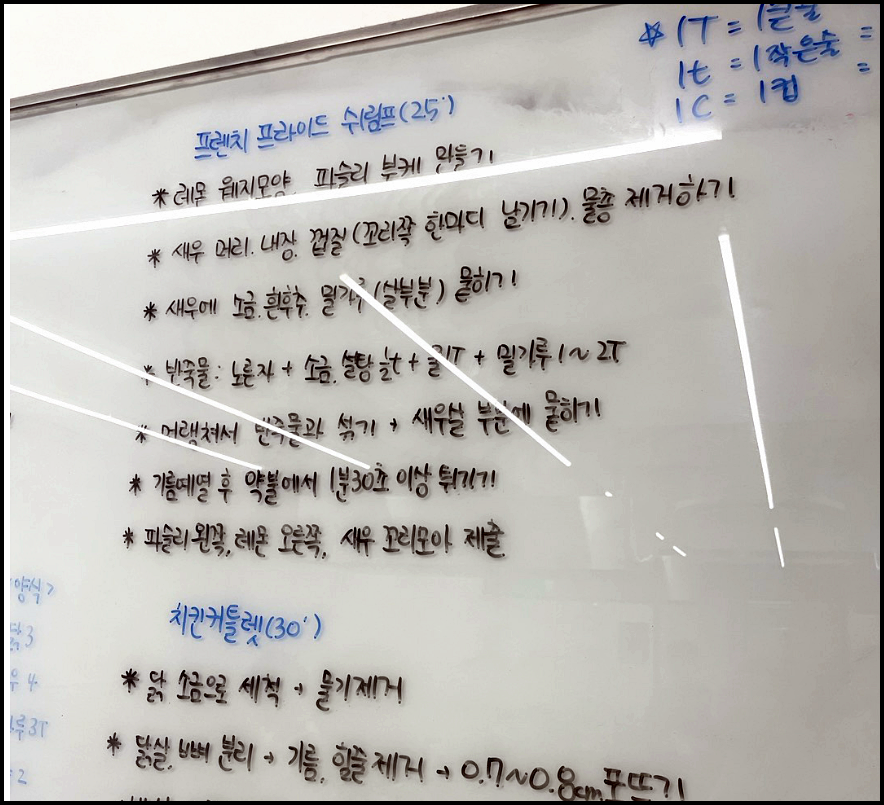 ☆ 1T = 1큰술 =
1t = 1작은술 =
1C = 1컵
프렌치 프라이드 쉬림프(25')
* 레몬 웨지모양, 파슬리 부케 만들기
* 새우 머리, 내장, 껍질(꼬리쪽 한마디 남기기), 물총 제거하기
* 새우에 소금, 흰후추, 밀가루(살부분) 묻히기
* 반죽물: 노른자 + 소금, 설탕 + 밀가루 1~2T
* 머랭쳐서 반죽물과 섞기 → 새우살 부분에 묻히기
* 기름예열 후 약불에서 1분30초 이상 튀기기
* 파슬리 왼쪽, 레몬 오른쪽, 새우 꼬리모아 제출
양식
3
4
3T
2
치킨커틀렛(30')
* 닭 소금으로 세척 → 물기제거
* 닭살, 뼈 분리 → 기름, 힘줄 제거 → 0.7~0.8cm 포뜨기